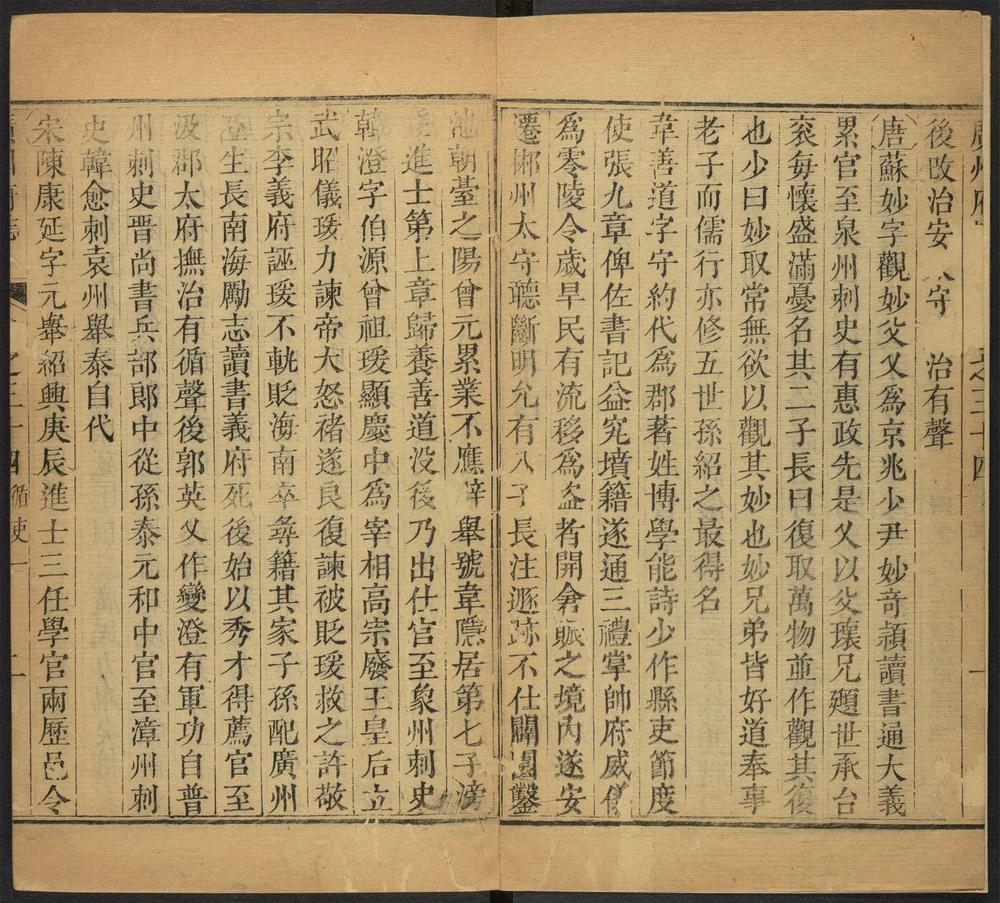 廣州府
之三十四
一
後改治安 守 治有聲
唐蘇妙字觀妙父又為京兆少尹妙奇穎讀書通大義
累官至泉州刺史有惠政先是又以父瓌兄頲世承台
衮每懷盛滿憂名其二子長曰復取萬物並作觀其復
也少曰妙取常無欲以觀其妙也妙兄弟皆好道奉事
老子而儒行亦修五世孫紹之最得名
韋善道字守約代為郡著姓博學能詩少作縣吏節度
使張九章俾佐書記益究墳籍遂通三禮掌帥府威
為零陵令歲旱民有流移為盜者開倉賑之境內遂安
遷郴州太守聽斷明允有八子長注遯跡不仕闢園鑿
池朝臺之陽曾元累業不應 舉號韋隱居第七子滂
進士第上章歸養善道没後乃出仕官至象州刺史
韓澄字伯源曾祖瑗顯慶中為宰相高宗廢王皇后立
武昭儀瑗力諫帝大怒褚遂良復諫被貶瑗救之許敬
宗李義府誣瑗不軌貶海南卒彝籍其家子孫配廣州
澄生長南海勵志讀書義府死後始以秀才得薦官至
汲郡太府撫治有循聲後郭英乂作變澄有軍功自普
州刺史晋尚書兵部郎中從孫泰元和中官至漳州刺
史韓愈刺袁州舉泰自代
宋陳康延字元舉紹興庚辰進士三任學官兩歷邑令
廣州府志
之三十四循吏一
一